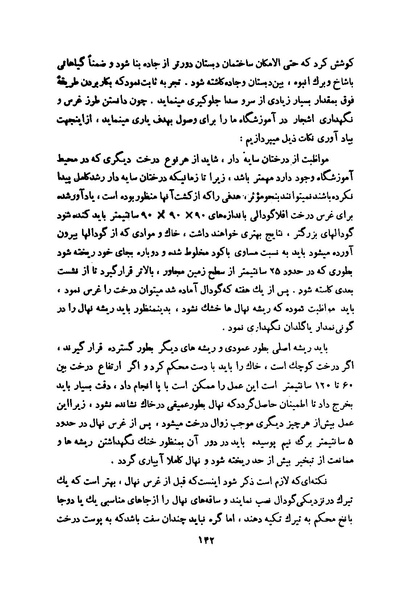 کوشش کرد که حتی الامکان ساختمان دبستان دورتر از جاده بنا شود و ضمناً گیاهانی
باشاخ وبرك انبوه ، بین‌دبستان وجاده‌کاشته شود . تجربه ثابت‌نمود‌که بکاربردن طریقهٔ
فوق بمقدار بسیار زیادی از سرو صدا جلوگیری مینماید . چون دانستن طرز غرس و
نگهداری اشجار در آموزشگاه ما را برای وصول بهدف یاری مینماید ، ازاینجهت
بیاد آوری نکات ذیل میپردازیم :
مواظبت از درختان سایه دار ، شاید از هر نوع درخت دیگری که در محیط
آموزشگاه وجود دارد مهمتر باشد ، زیرا تا زمانیکه درختان سایه دار رشدکامل پیدا
نکرده‌باشند‌نمیتوانند‌بنحومؤثر، هدفی راکه ازکشت‌آنها منظوربوده است ، یادآورشده
برای غرس درخت اقلاگودالی باندازه‌های ۹۰ × ۹۰ × ۹۰ سانتیمتر باید کنده شود
گودالهای بزرگتر ، نتایج بهتری خواهند داشت ، خاك و موادی که از گودالها بیرون
آورده میشود باید به نسبت مساوی باکود مخلوط شده و دوباره بجای خود ریخته شود
بطوری که در حدود ۲۵ سانتیمتر از سطح زمین مجاور ، بالاتر قرارگیرد تا از نشست
بعدی کاسته شود . پس از یك هفته که‌گودال آماده شد میتوان درخت را غرس نمود ،
باید مواظبت نموده که ریشه نهال ها خشك نشود ، بدینمنظور باید ریشه نهال را در
گونی‌نمدار یا‌گلدان نگهداری نمود .
باید ریشه اصلی بطور عمودی و ریشه های دیگر بطور گسترده قرار گیرند ،
اگر درخت کوچك است ، خاك را باید با دست محکم کرد و اگر ارتفاع درخت بین
۶۰ تا ۱۲۰ سانتیمتر است این عمل را ممکن است با پا انجام داد ، دقت بسیار باید
بخرج داد تا اطمینان حاصل‌گردد‌که نهال بطورعمیقی درخاك نشانده نشود ، زیرا‌این
عمل بیش‌از هر‌چیز دیگری موجب زوال درخت میشود ، پس از غرس نهال در حدود
۵ سانتیمتر برگ نیم پوسیده باید در دور آن بمنظور خنك نگهداشتن ریشه ها و
ممانعت از تبخیر بیش از حد ریخته شود و نهال کاملا آبیاری گردد .
نکته‌ای‌که لازم است ذکر شود اینست‌که قبل از غرس نهال ، بهتر است که یك
تیرك در‌نزدیکی‌گودال نصب نمایند و ساقه‌های نهال را از‌جاهای مناسبی یك یا دو‌جا
بانخ محکم به تیرك تکیه دهند ، اما گره نباید چندان سفت باشد‌که به پوست درخت
۱۴۲